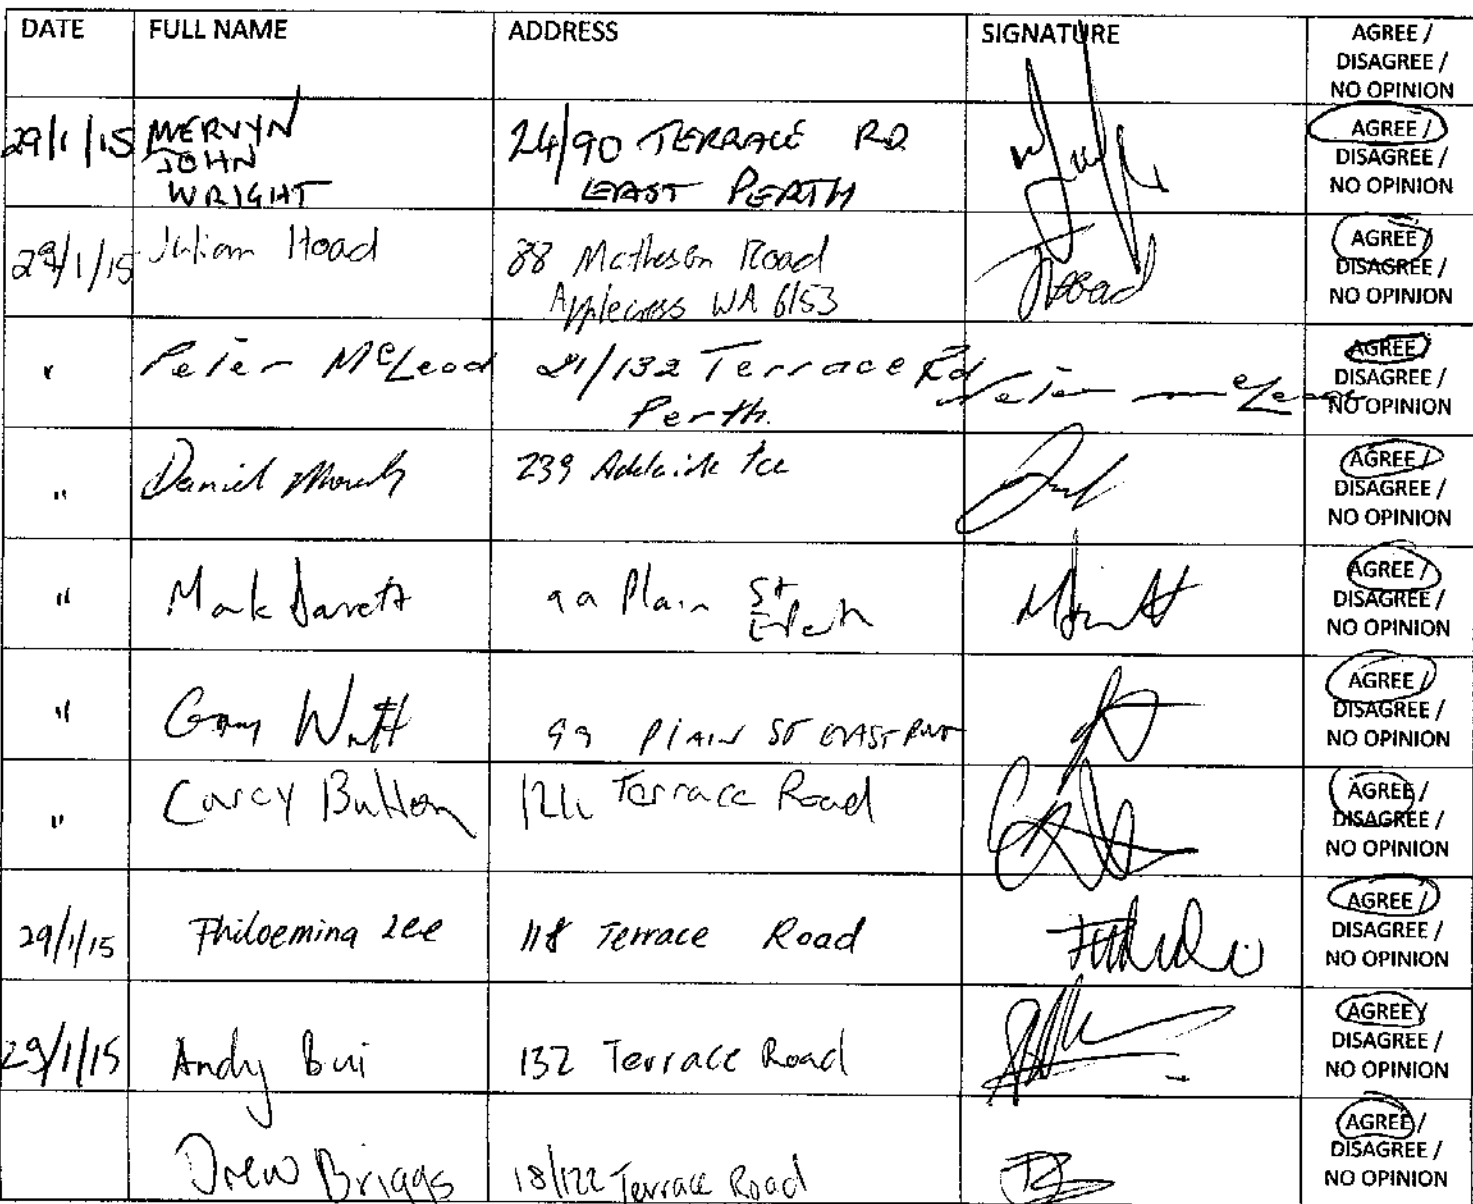 DATE FULL NAME ADDRESS SIGNATURE AGREE /
DISAGREE /
NO OPINION
29/1/15 MERVYN 24/90 TERRACE RD AGREE /
JOHN EAST PERTH DISAGREE /
WRIGHT NO OPINION
29/1/15 Julian Hoad 88 Matheson Road JHoad AGREE /
Applecross WA 6153 DISAGREE /
NO OPINION
" Peter McLeod 21/132 Terrace Rd Peter McLeod AGREE /
Perth. DISAGREE /
NO OPINION
" Daniel 239 Adelaide Tce AGREE /
DISAGREE /
NO OPINION
" Mark 99 Plain St AGREE /
E Perth DISAGREE /
NO OPINION
" Gary Watt 99 PLAIN ST EAST AGREE /
DISAGREE /
NO OPINION
" Carey Button Terrace Road AGREE /
DISAGREE /
NO OPINION
29/1/15 Philoemina Lee 118 Terrace Road AGREE /
DISAGREE /
NO OPINION
29/1/15 Andy Bui 132 Terrace Road AGREE /
DISAGREE /
NO OPINION
Drew Briggs 18/122 Terrace Road AGREE /
DISAGREE /
NO OPINION